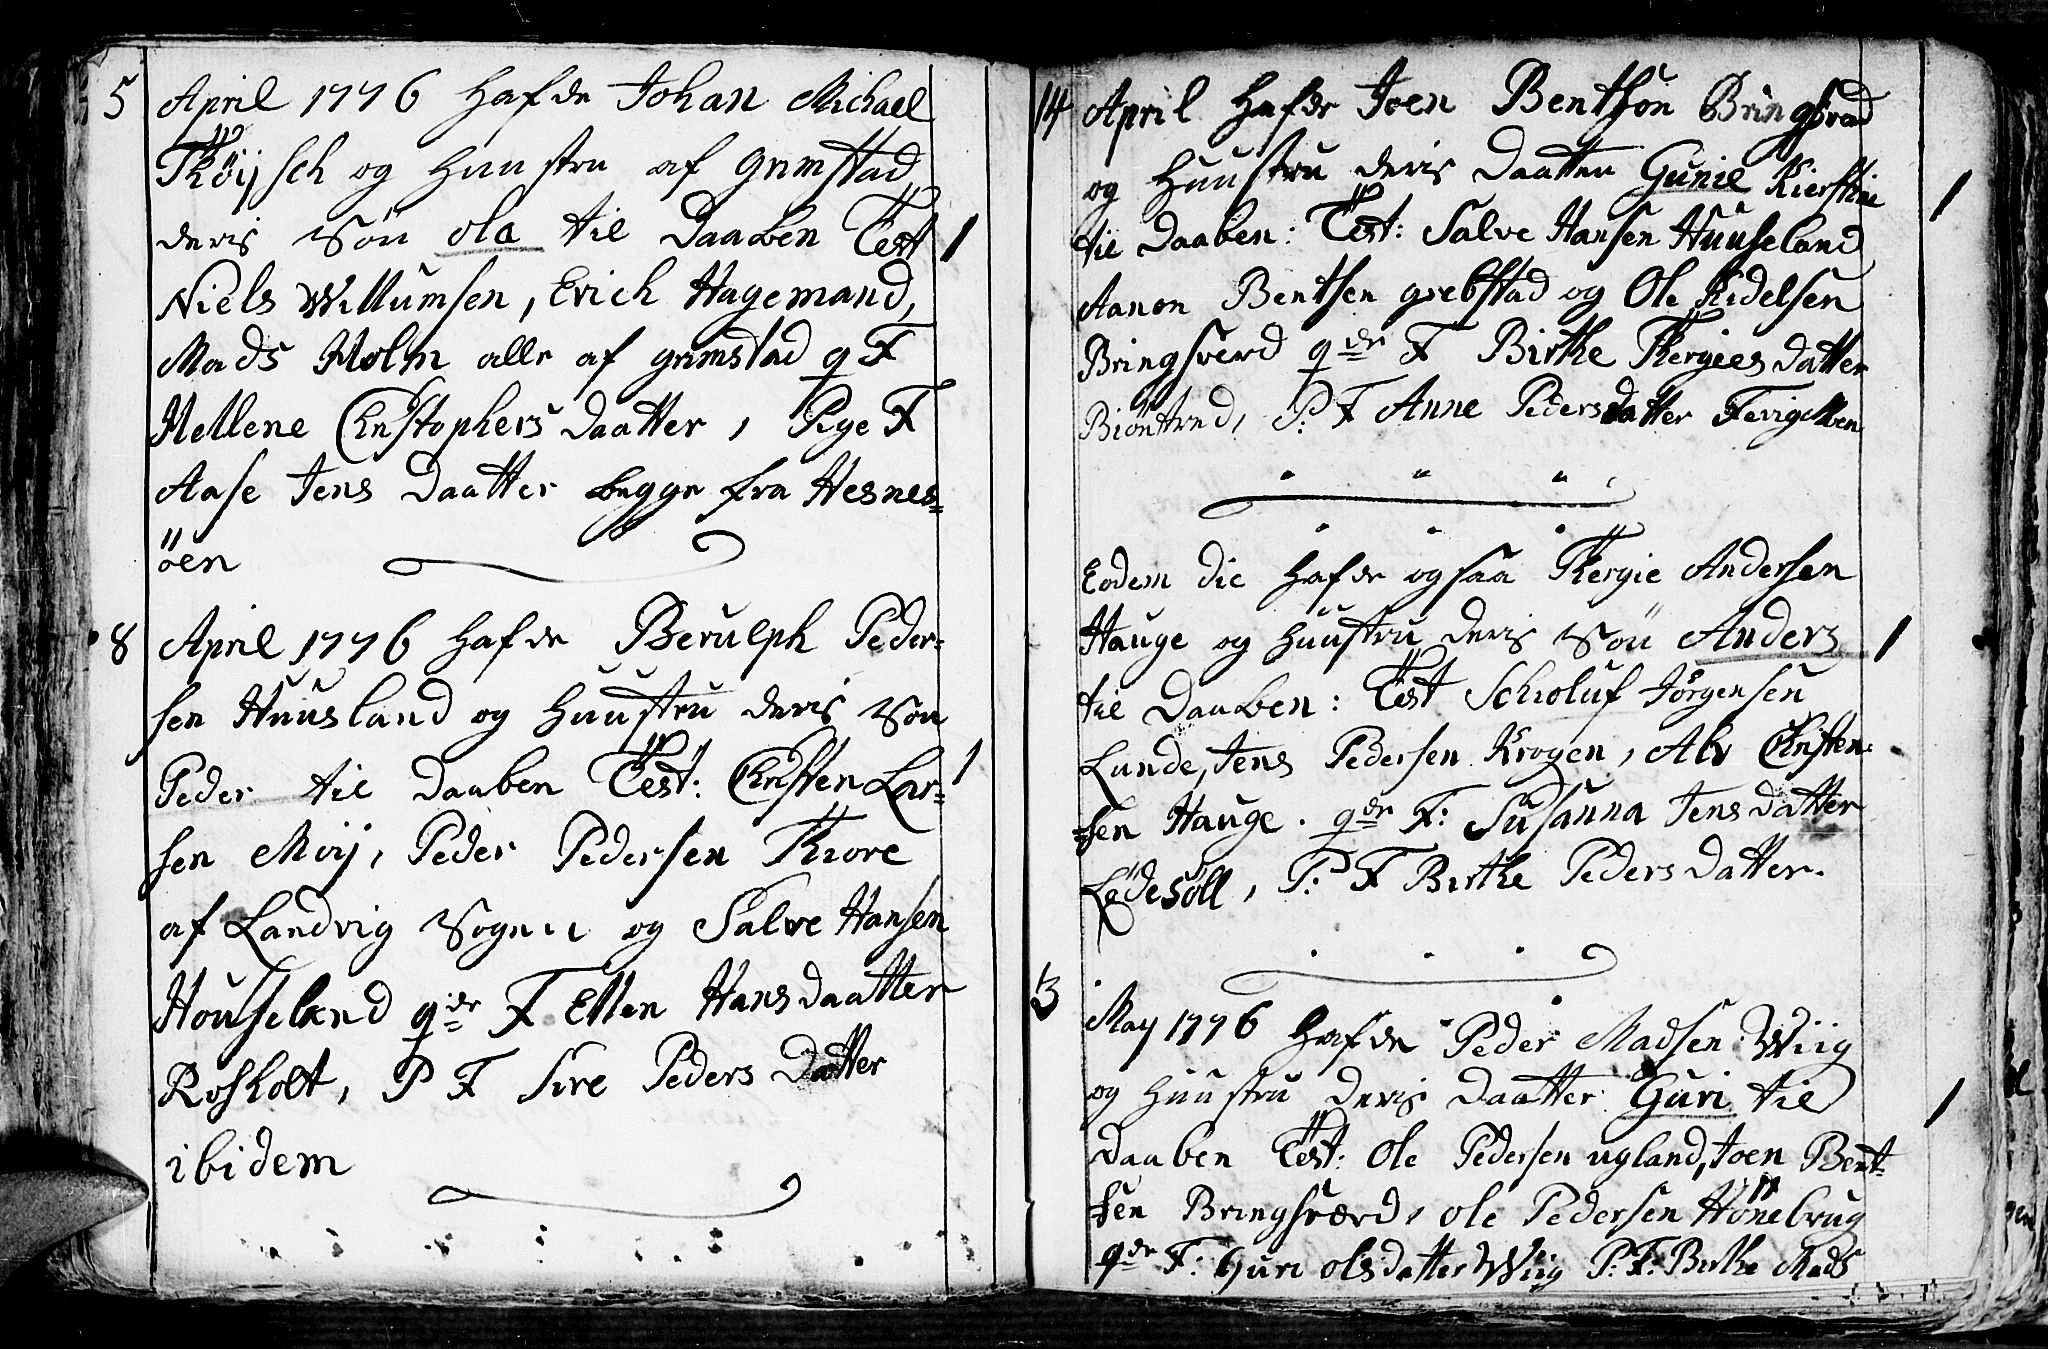 5 April 1776 hafde Johan Michael
Thöÿsch og Huustru af grimstad
deris Sön Ole til Daaben Test 1
Niels Willumsen, Erich Hagemand,
Mads Holm alle af grimstad q F
Hellene Christophers Daatter, Pige F
Aase Jens Daatter begge fra Hesnes=
öen
8 April 1776 hafde Berulph Peder=
sen Huusland og Huustru deris Søn
Peder til Daaben Test: Christen Lar= 1
sen Moÿ, Peder Pedersen Thore
af Landvig Sogn og Salve Hansen
Houseland qde F Ellen Hans daatter
Rosholt, P F Sire Peders Datter
ibidem
14 April hafde Joen Bentsön Bringsverd
og Huustru deris Daatter Gunil Kierstine 1
til Daaben: Test: Salve Hansen Huuseland
Aanon Bentsen grebstad og Ole Kidelsen
Bringsverd qde F Birthe Thergies Datter
Biöntred, P: F Anne Peders datter
Eodem die hafde ogsaa Thergie Andersen
Hauge og Huustru deris Sön Anders 1
til Daaben: Test Schioluf Jörgensen
Lunde, Jens Pedersen Krogen, Alv Christen=
=sen Hauge. qde F: Susanna Jens datter
Ledesöll, P: F Birthe Peders Datter.
3 May 1776 hafde Peder Madsen Wiig
og Huustru deris Daatter Guri til 1
Daaben Test: Ole Pedersen ugland, Joen Bent=
sen Bringsværd, Ole Pedersen Hönebrug
qde F: Guri Olsdatter Wiig P: F: Birthe Mads